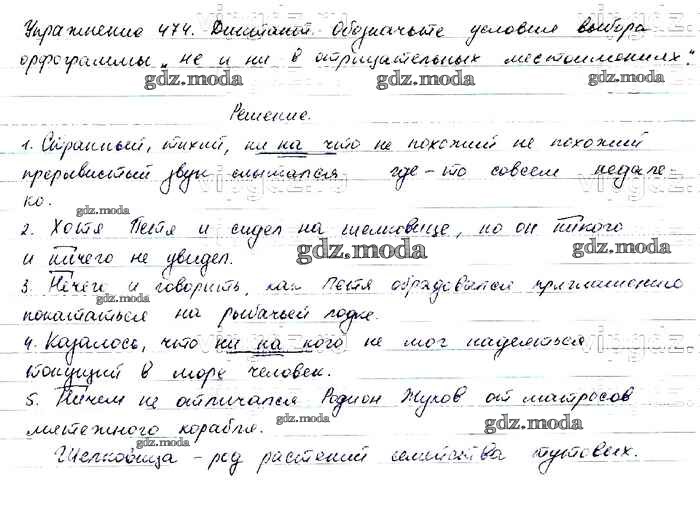 Упражнение 474. Диктант. Обозначьте условия выбора
орфограммы „не и ни в отрицательных местоимениях."
gdz.moda gdz.moda
Решение.
1. Странный, тихий, ни на что не похожий не похожий
прерывистый звук слышался где-то совсем недале
ко.
gdz.moda
2. Хотя Петя и сидел на шелковице, но он никого
и ничего не увидел.
gdz.moda gdz.moda
3. Нечего и говорить, как Петя обрадовался приглашению
gdz.moda
покататься на рыбачьей лодке.
4. Казалось, что ни на кого не мог надеяться
тонущий в море человек.
5. Ничем не отличался Родион Жуков от матросов
мятежного корабля.
gdz.moda gdz.moda gdz.moda
Шелковица – род растений семейства тутовых.